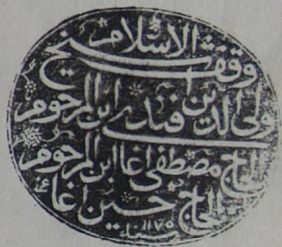 وقف شيخ الاسلام
ولى الدين افندى ابن المرحوم
الحاج مصطفى اغا ابن المرحوم
الحاج حسين اغا
سنه ١١٧٥